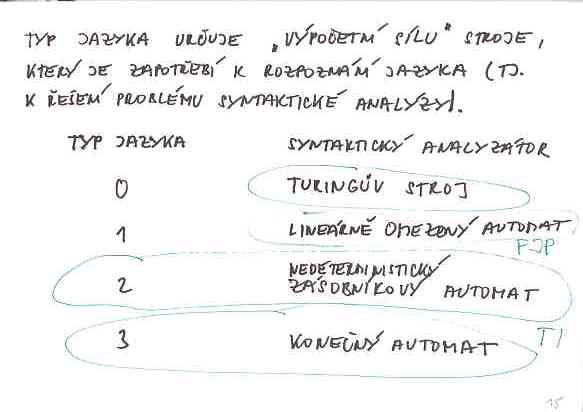 TYP JAZYKA URČUJE „VÝPOČETNÍ SÍLU" STROJE,
KTERÝ JE ZAPOTŘEBÍ K ROZPOZNÁNÍ JAZYKA (TJ.
K ŘEŠENÍ PROBLÉMU SYNTAKTICKÉ ANALÝZY).
TYP JAZYKA SYNTAKTICKÝ ANALYZÁTOR
0 TURINGŮV STROJ
1 LINEÁRNĚ OMEZENÝ AUTOMAT
FJP
NEDETERMINISTICKÝ
2 ZÁSOBNÍKOVÝ AUTOMAT
TI
3 KONEČNÝ AUTOMAT
15